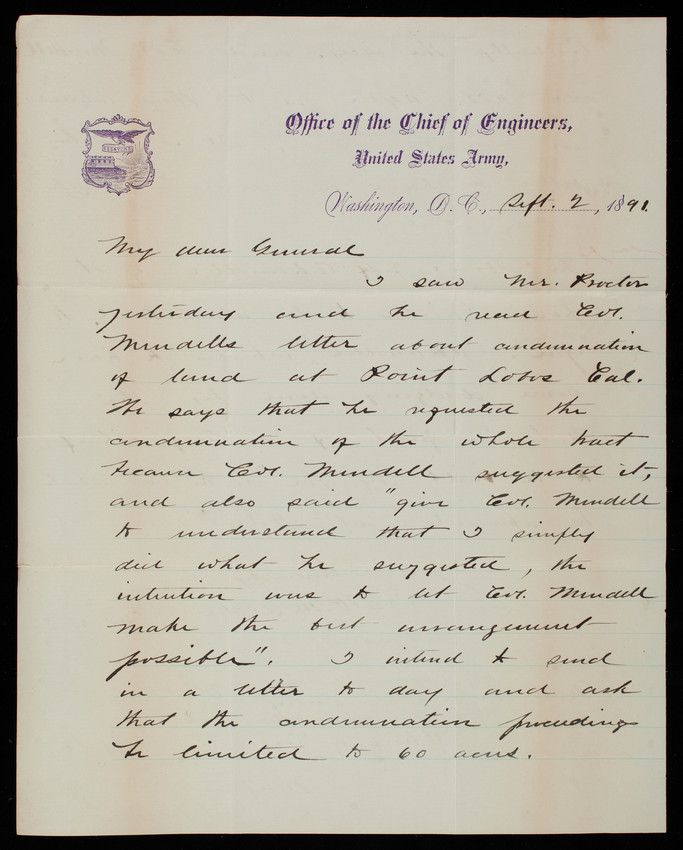 ESSAYONS
Office of the Chief of Engineers,
United States Army,
Washington, D. C., Sept. 2, 1891.
My dear General
I saw Mr. Proctor
yesterday and he read Col.
Mendells letter about condemnation
of land at Point Lobos Cal.
He says that he requested the
condemnation of the whole tract
because Col. Mendell suggested it,
and also said "give Col. Mendell
to understand that I simply
did what he suggested, the
intention was to let Col. Mendell
make the best arrangement
possible". I intend to send
in a letter to day and ask
that the condemnation proceedings
be limited to 60 acres.